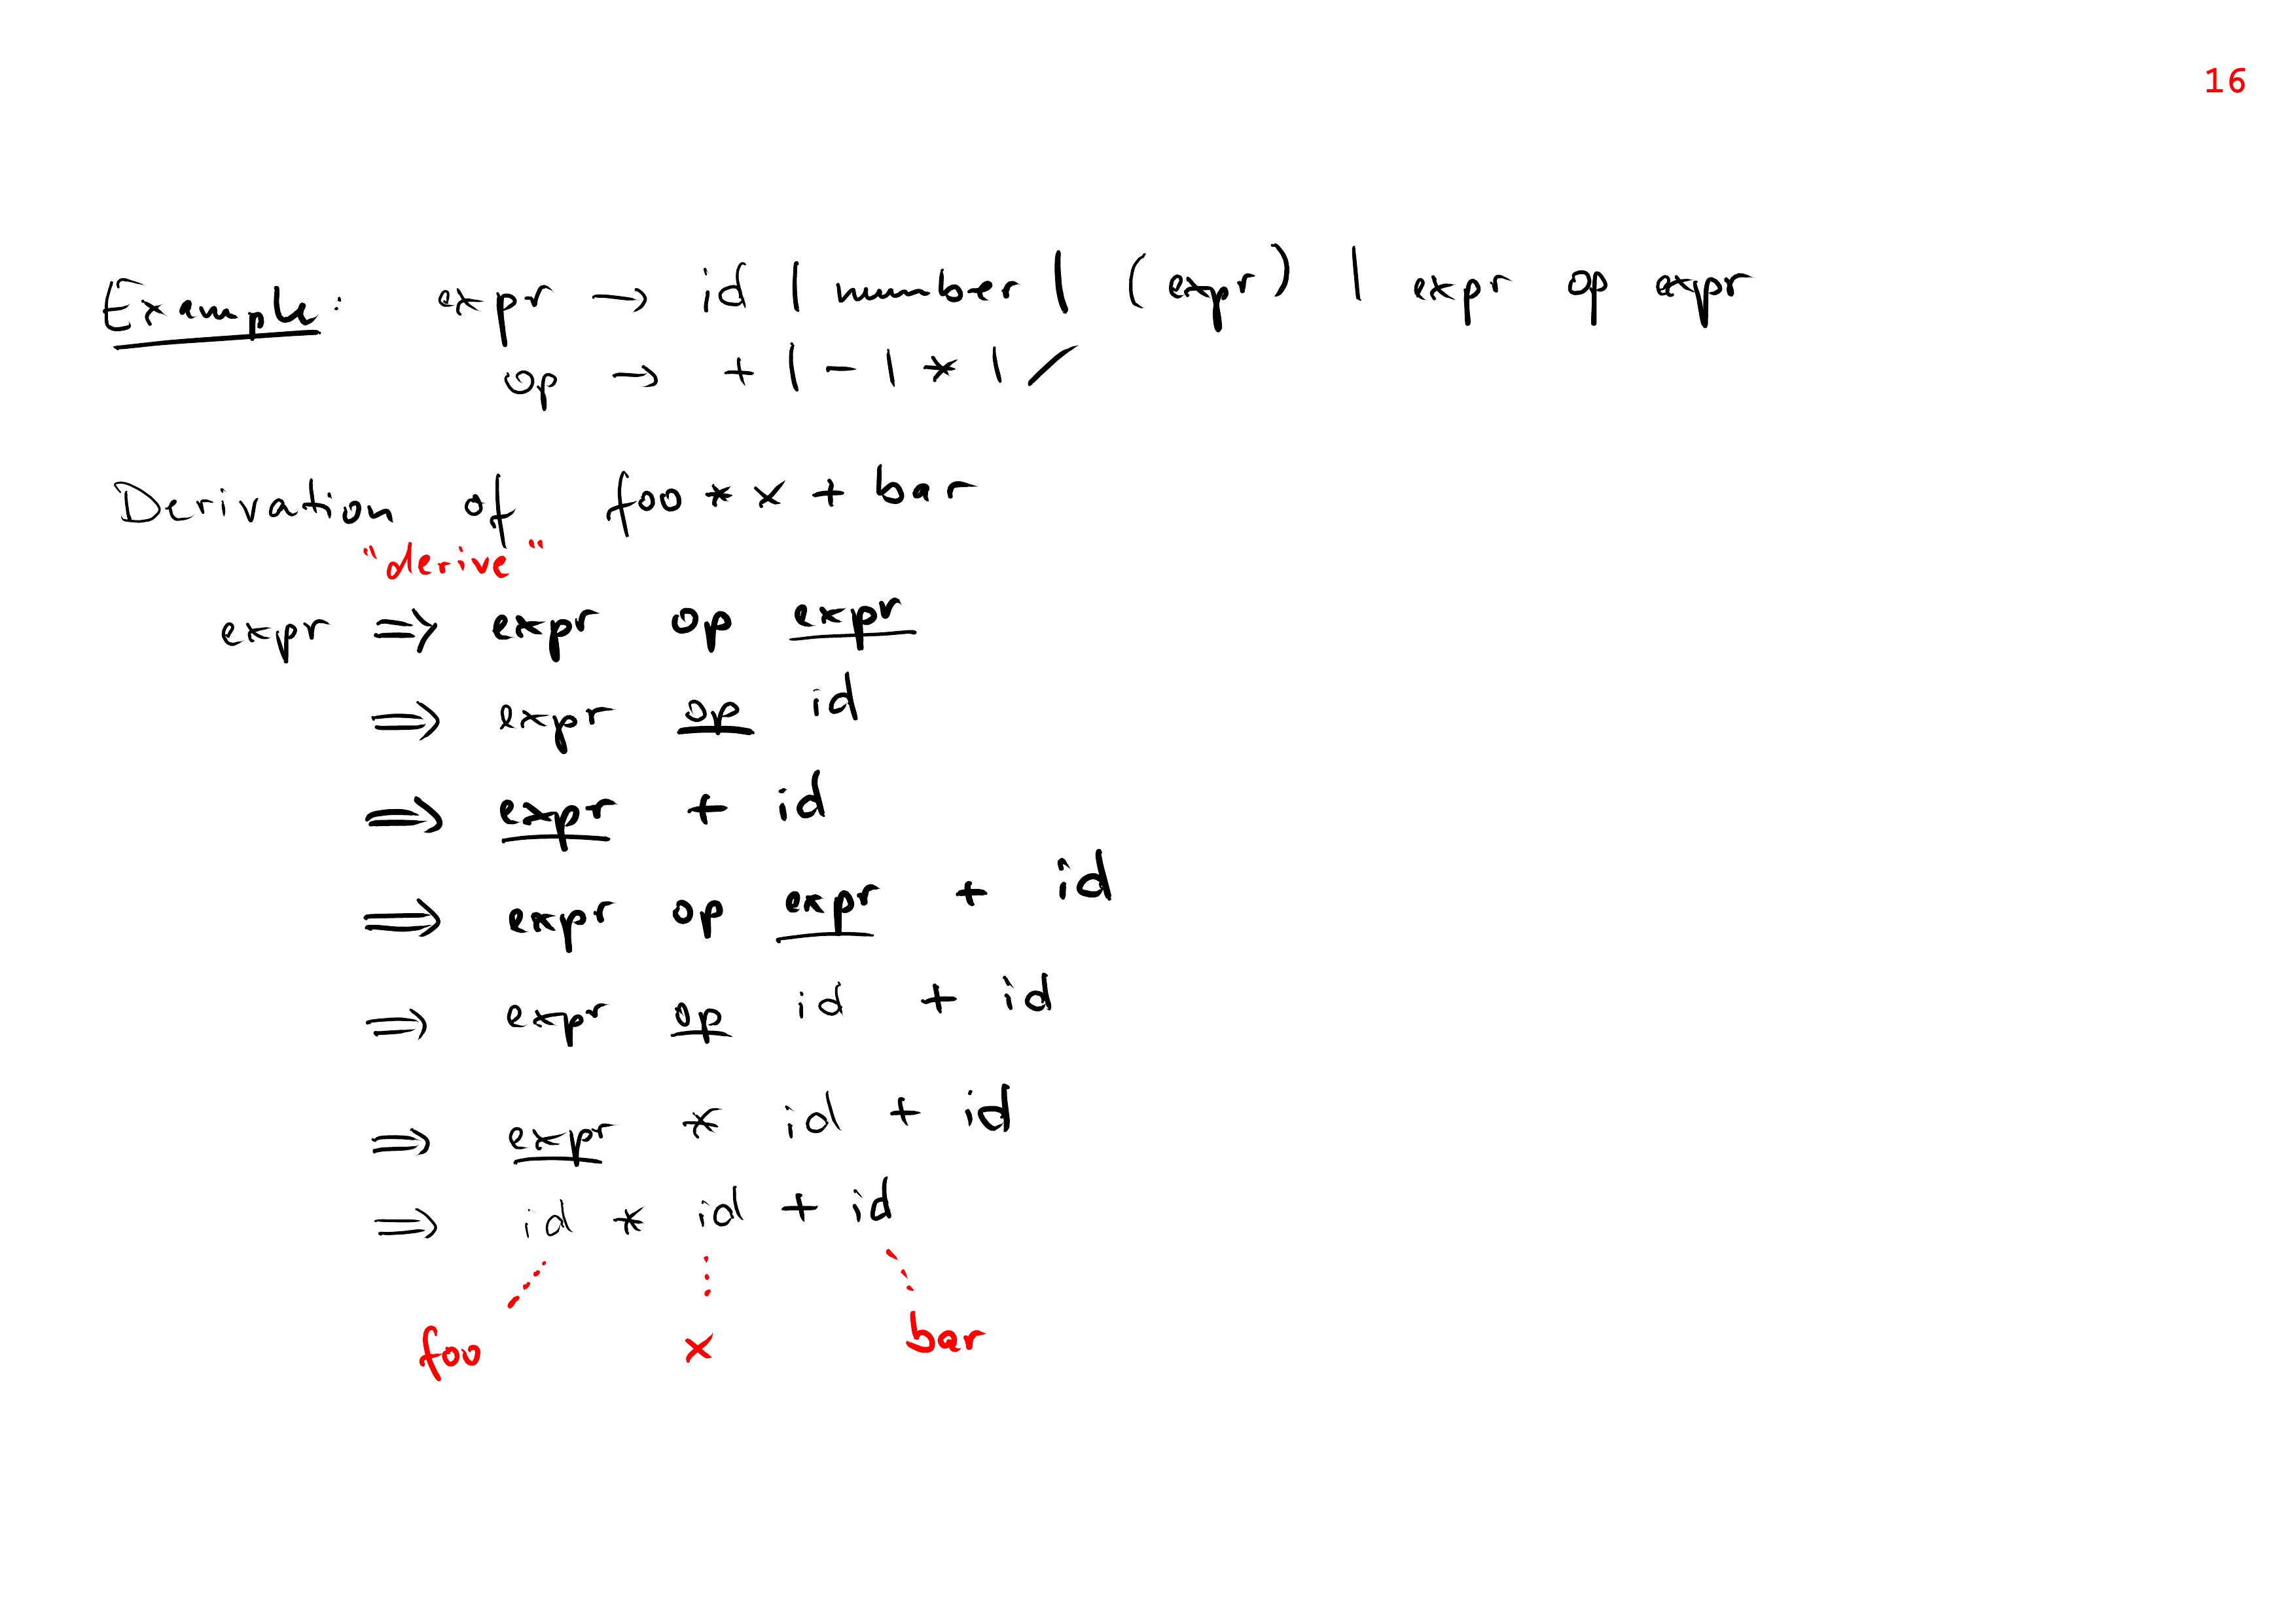 16
Example: expr → id | number | (expr) | expr op expr
op → + | - | * | /
Derivation of foo * x + bar
"derive"
expr ⇒ expr op expr
⇒ expr op id
⇒ expr + id
⇒ expr op expr + id
⇒ expr op id + id
⇒ expr * id + id
⇒ id * id + id
foo x bar